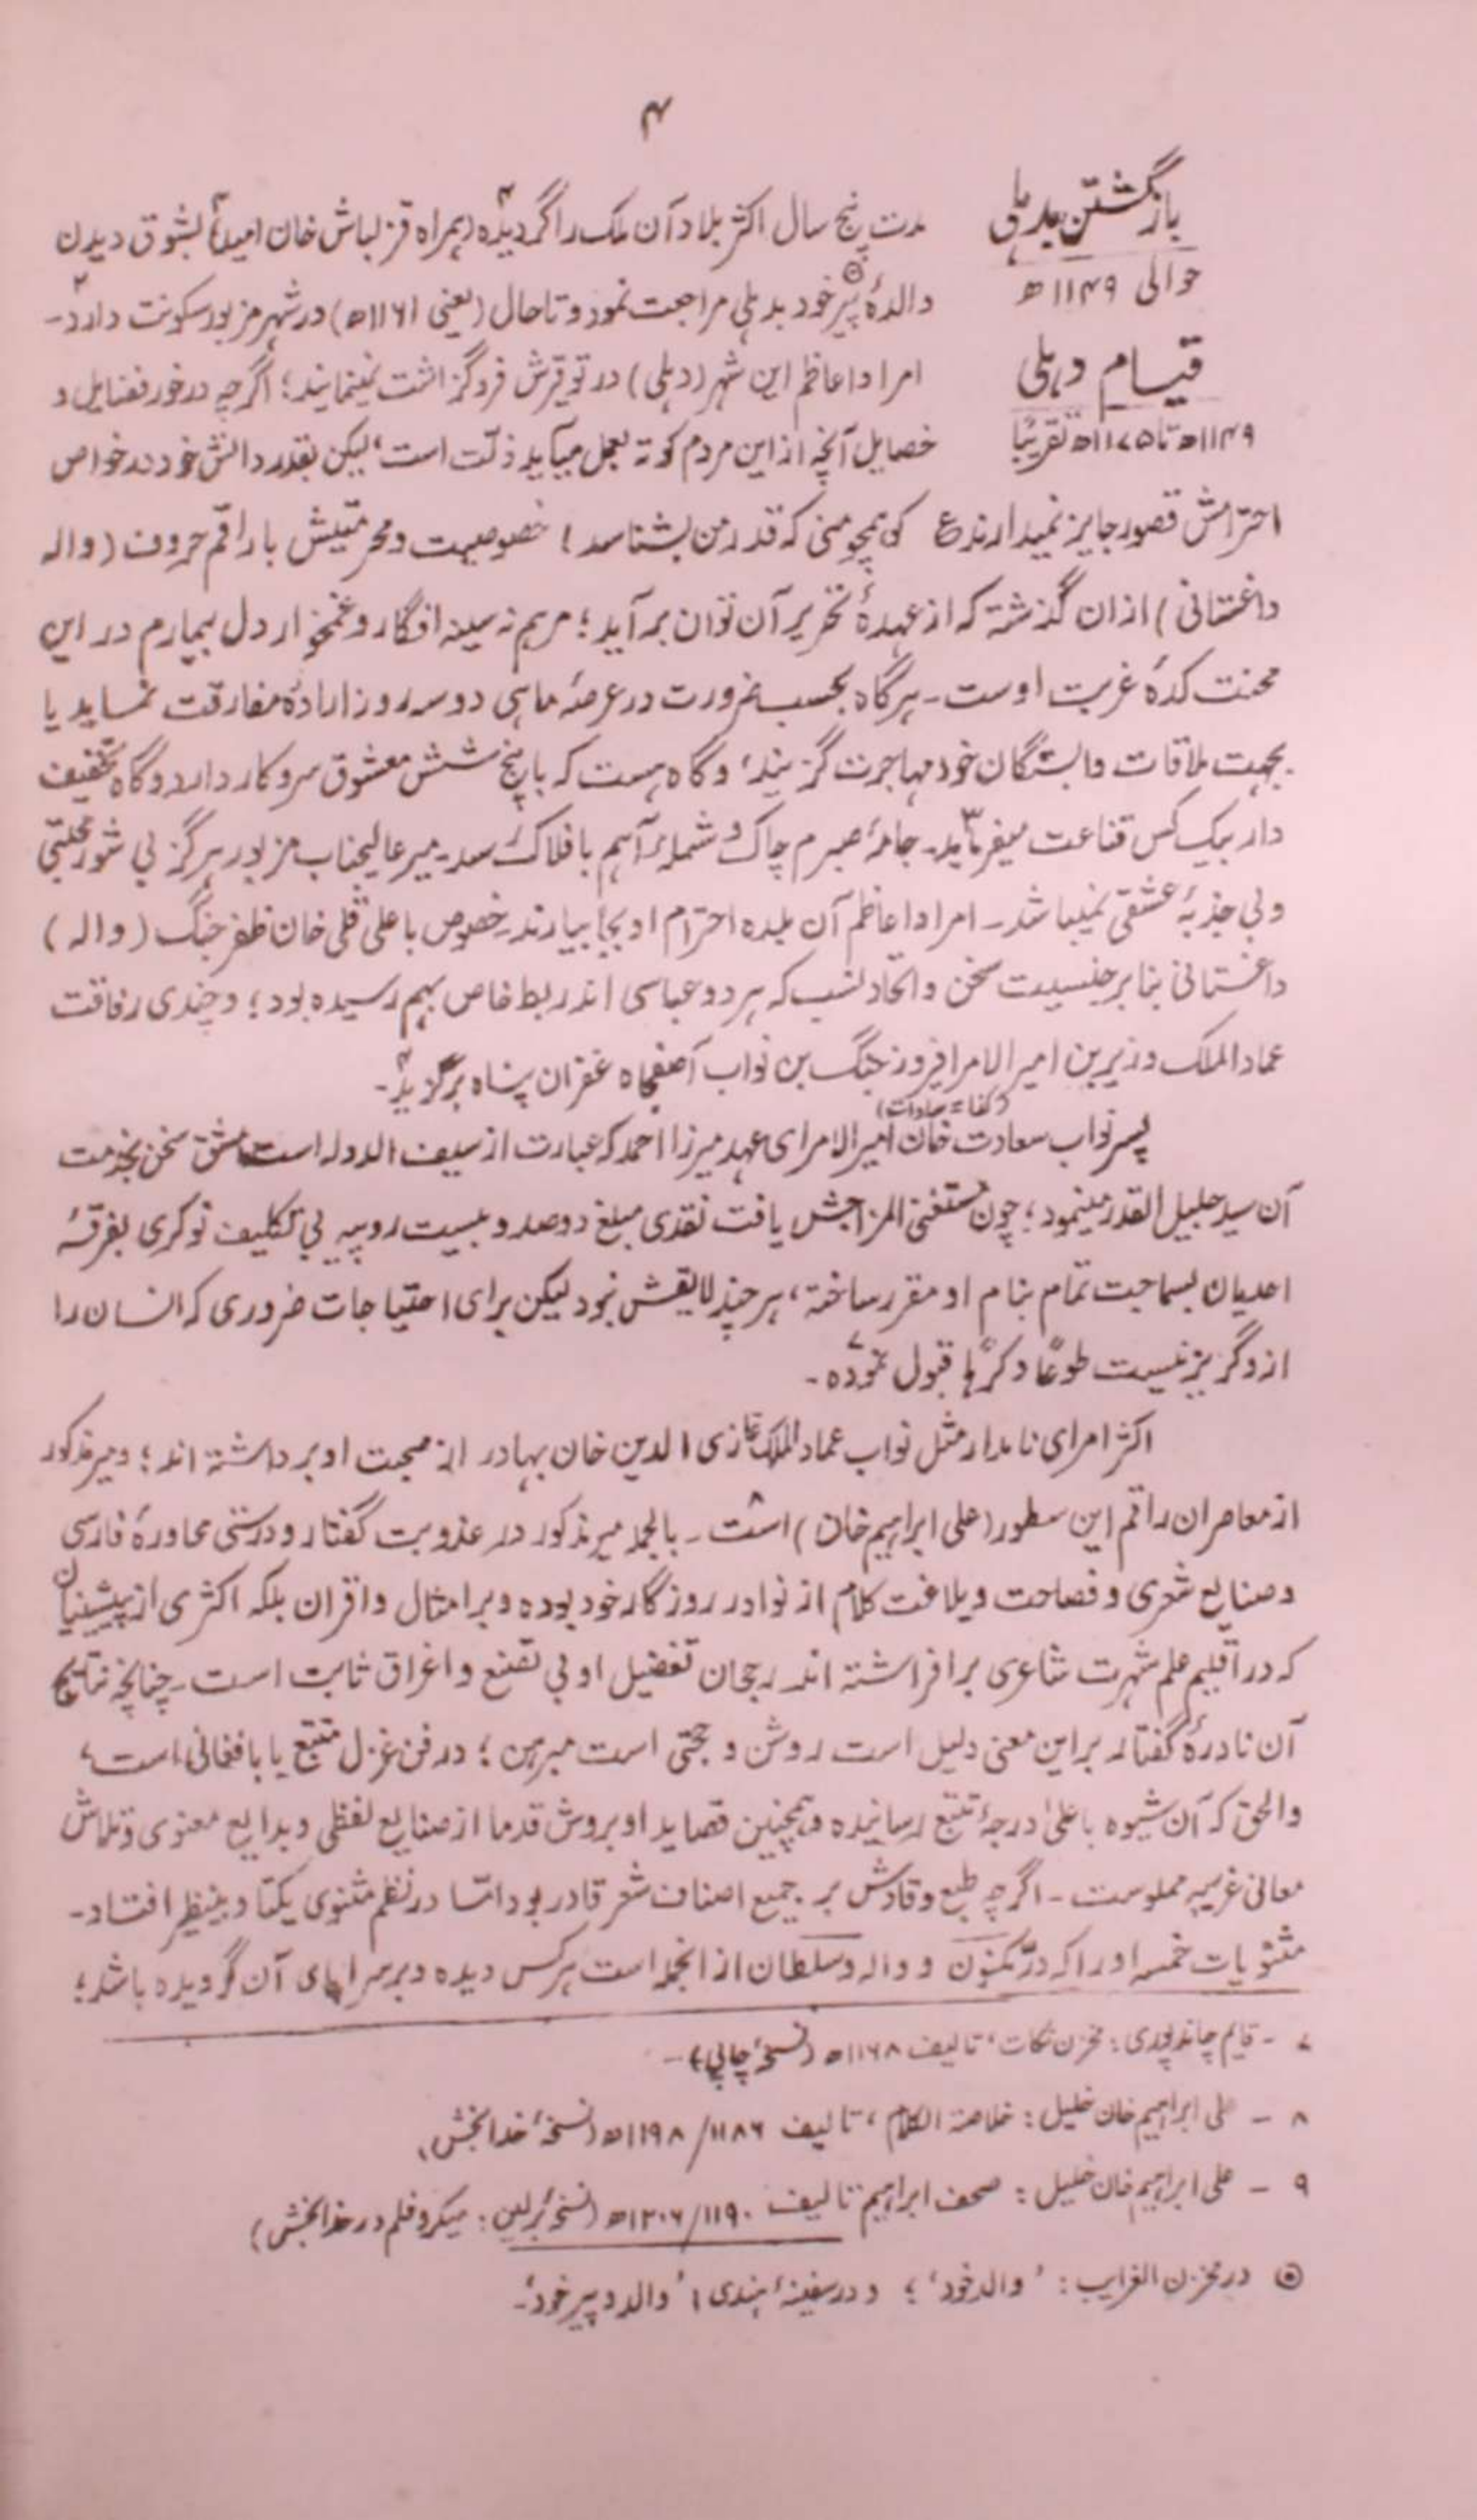 ۴
بازگشتن بدہلی
حوالی ۱۱۴۹ھ
مدت پنج سال اکثر بلاد آن ملک را گردیدہ ہمراہ قزلباش خان امید۴ بشوق دیدن
والدۂ پیر خود بدہلی مراجعت نمود و تا حال (یعنی ۱۱۶۱ھ) در شہر مزبور سکونت دارد۔
قیام دہلی
۱۱۴۹ھ تا ۱۱۷۵ھ تقریبًا
امرا و اعاظم این شہر (دہلی) در توقیرش فروگزاشت نمینمایند؛ اگرچہ درخور فضایل و
خصایل آنچہ از این مردم کوتہ بعمل میآید ذلّت است، لیکن بقدر دانش خود در خواص
احترامش قصور جایز نمیدارند ع کو ہمچو منی کہ قدر من بشناسد! خصوصیت و محرمیتیش با راقم حروف (والہ
داغستانی) ازان گذشتہ کہ از عہدۂ تحریر آن توان برآید؛ مرہم نہ سینہ افگار و غمخوار دل بیمارم در این
محنت کدۂ غربت اوست۔ ہرگاہ بحسب ضرورت در عرصۂ ماہی دو سہ روز ارادۂ مفارقت نماید یا
بجہت ملاقات وابستگان خود مہاجرت گزیند، و گاہ ہست کہ با پنج شش معشوق سروکار دارد و گاہ تخفیف
دار بیک کس قناعت میفرماید۳۔ جامۂ صبرم چاک و شملۂ آہم بافلاک رسد۔ میر عالیجناب مزبور ہرگز بی شور محبتی
و بی جذبۂ عشقی نمیباشد۔ امرا و اعاظم آن بلدہ احترام او بجا بیارند۔ خصوص با علی قلی خان ظفر جنگ (والہ)
داغستانی بنابر جنسیت سخن و اتحاد نسب کہ ہر دو عباسی اند ربط خاص بہم رسیدہ بود؛ و چندی رفاقت
عماد الملک وزیر بن امیر الامرا فیروز جنگ بن نواب آصفجاہ غفران پناہ برگزید۴۔
(کذا = سادات)
پسر نواب سعادت خان امیر الامرای عہد میرزا احمد کہ عبارت از سیف الدولہ است مشق سخن بخدمت
آن سید جلیل القدر مینمود؛ چون مستغنی المزاجش یافت نقدی مبلغ دو صد و بیست روپیہ بی تکلیف نوکری بفرقۂ
اعدیان بسماجت تمام بنام او مقرر ساختہ، ہر چند لایقش نبود لیکن برای احتیاجات ضروری کہ انسان را
ازو گریز نیست طوعًا و کرہًا قبول نمودہ۷۔
اکثر امرای نامدار مثل نواب عماد الملک غازی الدین خان بہادر از صحبت او برداشتہ اند؛ و میر مذکور
از معاصران راقم این سطور (علی ابراہیم خان) است۸۔ بالجملہ میر مذکور در عذوبت گفتار و درستی محاورۂ فارسی
و صنایع شعری و فصاحت و بلاغت کلام از نوادر روزگار خود بودہ و بر امثال و اقران بلکہ اکثری از پیشینیان
کہ در اقلیم علم شہرت شاعری برافراشتہ اند رجحان تفضیل او بی تصنع و اغراق ثابت است۔ چنانچہ نتایج
آن نادرۂ گفتار بر این معنی دلیل است روشن و حجتی است مبرہن؛ در فن غزل متتبع بابا فغانی است،
والحق کہ آن شیوہ باعلیٰ درجۂ تتبع رسانیدہ و ہمچنین قصاید او بروش قدما از صنایع لفظی و بدایع معنوی و تلاش
معانی غریبہ مملوست۔ اگرچہ طبع وقادش بر جمیع اصناف شعر قادر بود امّا در نظم مثنوی یکتا و بینظیر افتاد۔
مثنویات خمسہ او را کہ درّ مکنون و والہ و سلطان از انجملہ است ہر کس دیدہ و بر سراپای آن گردیدہ باشد؛
۷ ۔ قایم چاند پوری : مخزن نکات، تالیف ۱۱۶۸ھ (نسخۂ چاپی) ۔
۸ ۔ علی ابراہیم خان خلیل : خلاصۃ الکلام، تالیف ۱۱۸۶/۱۱۹۸ھ (نسخۂ خدابخش)
۹ ۔ علی ابراہیم خان خلیل : صحف ابراہیم تالیف ۱۱۹۰/۱۲۰۶ھ (نسخۂ برلین : میکروفلم در خدابخش)
۵ در مخزن الغرایب : ' والد خود '؛ و در سفینۂ ہندی : ' والد و پیر خود '۔